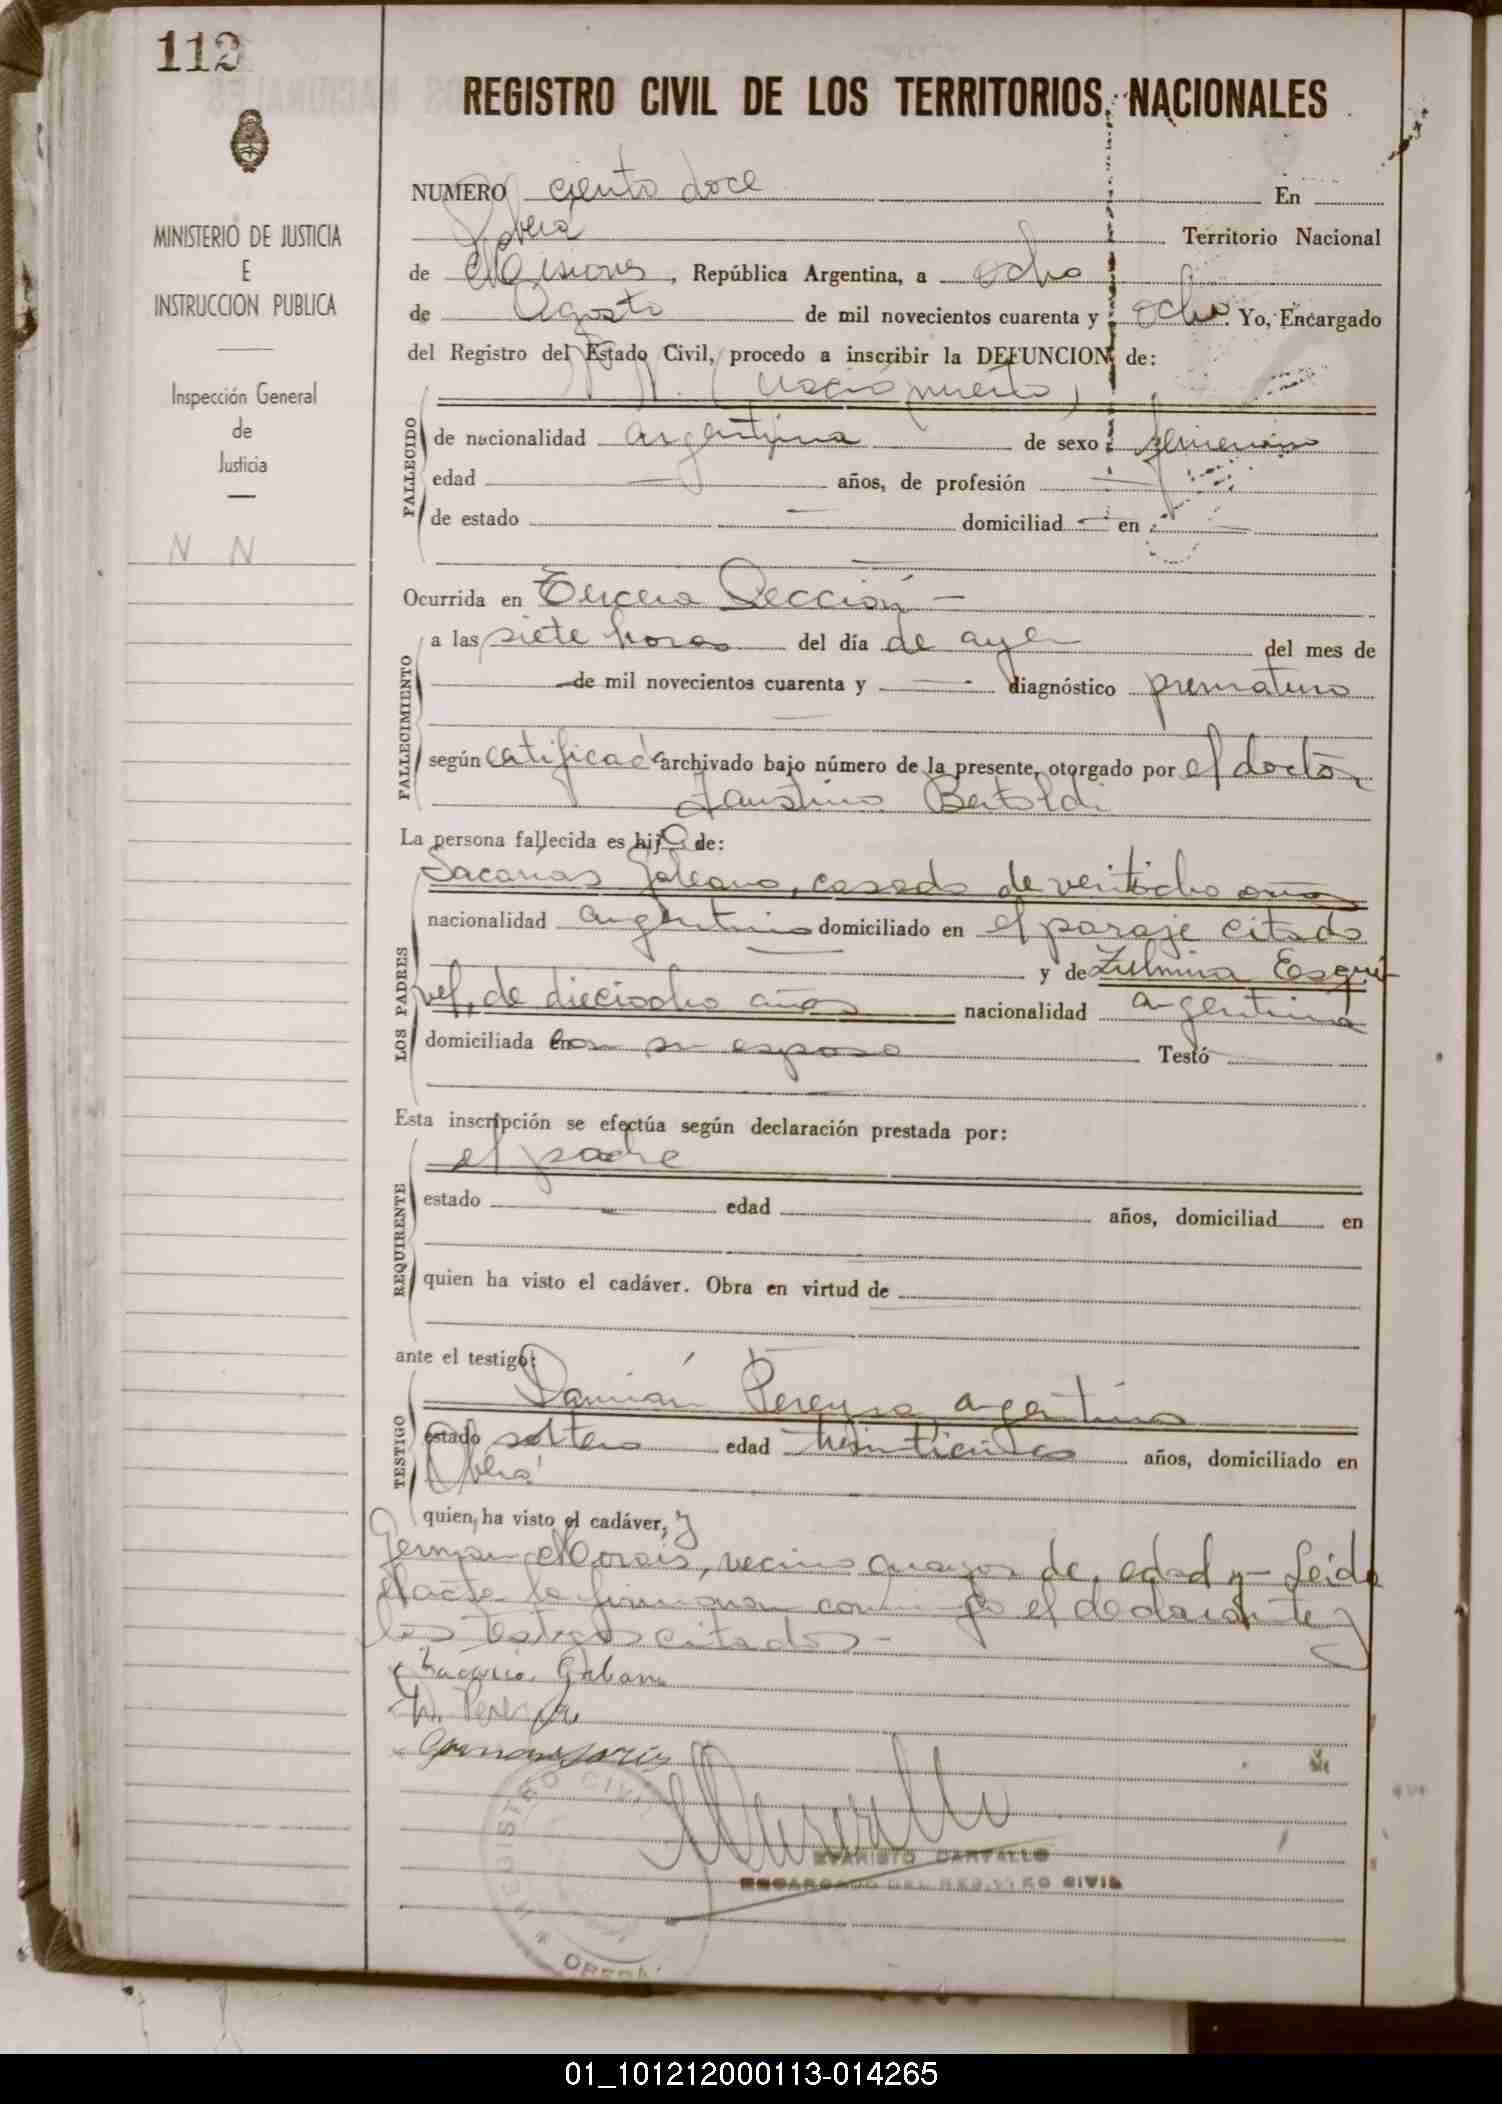 112
REGISTRO CIVIL DE LOS TERRITORIOS NACIONALES
MINISTERIO DE JUSTICIA
E
INSTRUCCION PUBLICA
Inspección General
de
Justicia
N N
NUMERO ciento doce En
Oberá Territorio Nacional
de Misiones, República Argentina, a ocho
de Agosto de mil novecientos cuarenta y ocho. Yo, Encargado
del Registro del Estado Civil, procedo a inscribir la DEFUNCION de:
N. N. (nació muerto)
FALLECIDO
de nacionalidad argentina de sexo femenino
edad — años, de profesión —
de estado — domiciliad — en —
Ocurrida en Tercera Sección —
FALLECIMIENTO
a las siete horas del día de ayer del mes de
— de mil novecientos cuarenta y — diagnóstico prematuro
según certificado archivado bajo número de la presente, otorgado por el doctor
Faustino Bertoldi
La persona fallecida es hija de:
LOS PADRES
Sacarias Galeano, casado de veintiocho años
nacionalidad argentino domiciliado en el paraje citado
y de Zulmira Esqui-
vel, de dieciocho años nacionalidad argentina
domiciliada en con su esposo Testó
Esta inscripción se efectúa según declaración prestada por:
REQUIRENTE
el padre
estado — edad años, domiciliad en
quien ha visto el cadáver. Obra en virtud de
ante el testigo:
TESTIGO
Damián Pereyra, argentino
estado soltero edad años, domiciliado en
Oberá
quien ha visto el cadáver, y
German Morais, vecino mayor de edad y — Leida
el acta la firmaron conmigo el declarante y
los testigos citados —
D. Pereyra
EVARISTO CARVALLO
ENCARGADO DEL REGISTRO CIVIL
REGISTRO CIVIL
OBERÁ
01_101212000113-014265